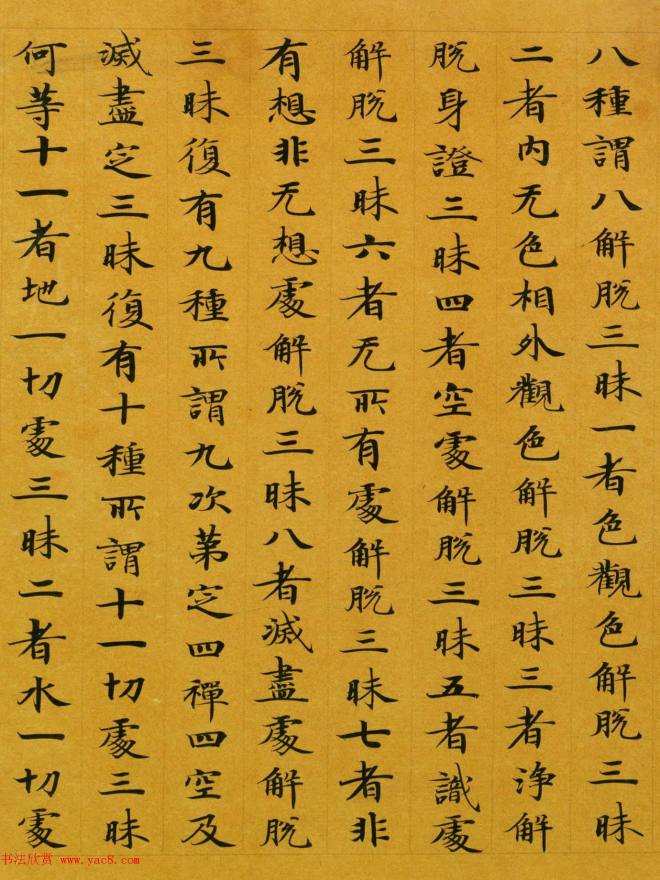 八種謂八解脫三昧一者色觀色解脫三昧
二者內无色相外觀色解脫三昧三者淨解
脫身證三昧四者空處解脫三昧五者識處
解脫三昧六者无所有處解脫三昧七者非
有想非无想處解脫三昧八者滅盡處解脫
三昧復有九種所謂九次苐定四禪四空及
滅盡定三昧復有十種所謂十一切處三昧
何等十一者地一切處三昧二者水一切處
书法欣赏 www.yac8.com